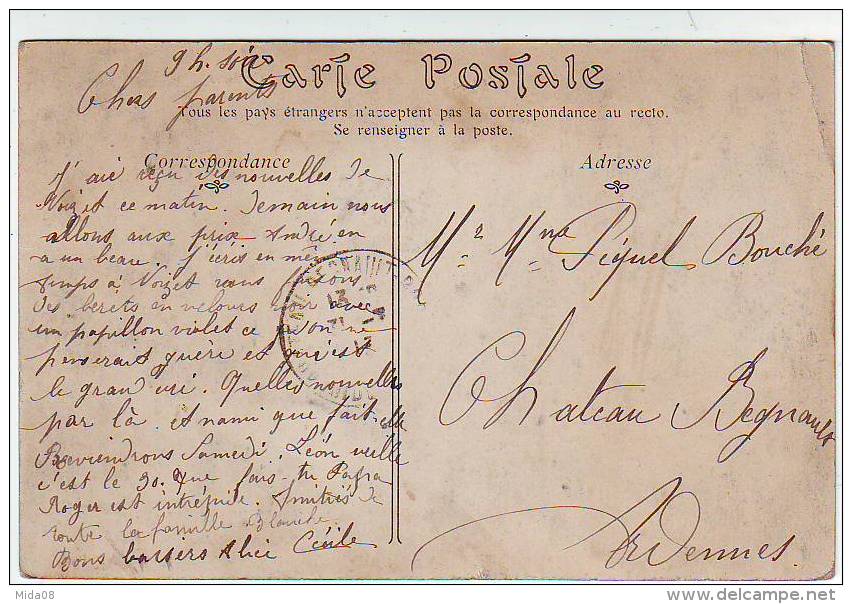 9 h. soir
Carte Postale
Chers parents
Tous les pays étrangers n'acceptent pas la correspondance au recto.
Se renseigner à la poste.
Correspondance
Adresse
J'aie reçu des nouvelles de
Voizet ce matin. Demain nous
allons aux prix André en
a un beau. J'écris en même
temps à Voizet nous
des berets en velours noir avec
un papillon violet ce
penserait guère et qui c'est
le grand cri. Quelles nouvelles
par là et nami que fait-elle
Reviendrons Samedi. Léon veille
c'est le 30. Que fais-tu Papa
Roger est intrépide. Amitiés de
toute la famille Blanche.
Bons baisers Alice Cécile
Mr Mme Piquel Bouché
Chateau Regnault
Ardennes.
Mida08
delcampe.net